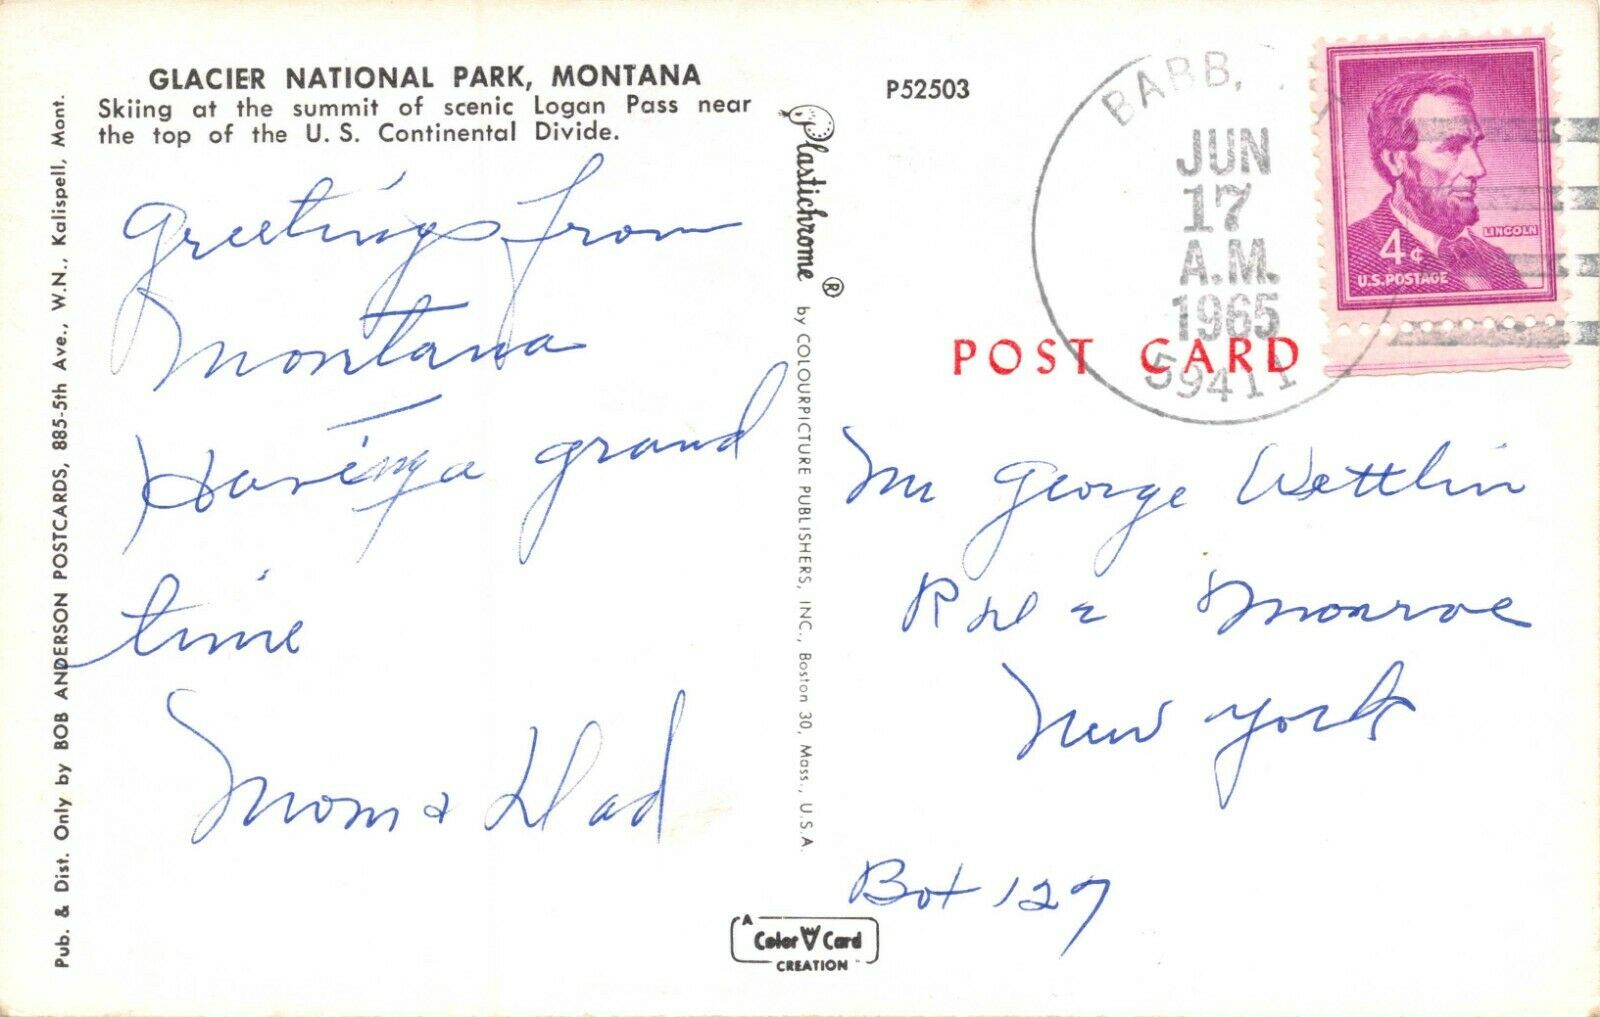 GLACIER NATIONAL PARK, MONTANA
Skiing at the summit of scenic Logan Pass near
the top of the U. S. Continental Divide.
Greetings from
Montana
Having a grand
time
Mom & Dad
Pub. & Dist. Only by BOB ANDERSON POSTCARDS, 885-5th Ave., W.N., Kalispell, Mont.
Plastichrome ® by COLOURPICTURE PUBLISHERS, INC., Boston 30, Mass., U.S.A.
P52503
BABB,
JUN
17
A.M.
1965
59411
LINCOLN
4¢
U.S. POSTAGE
POST CARD
Mr George Wettlin
Monroe
New York
Box 127
A
Color Card
CREATION